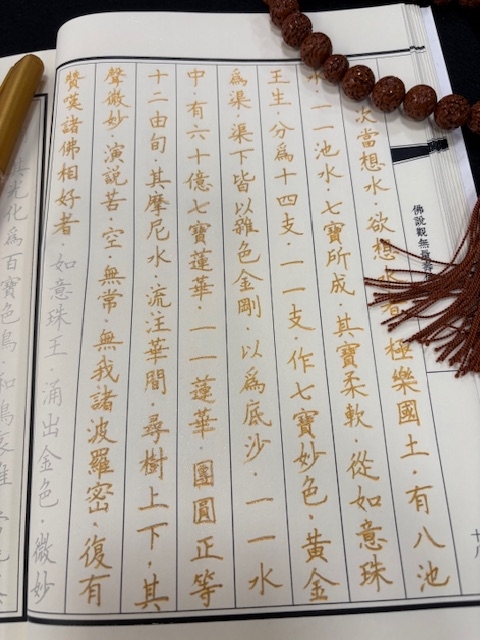 佛說觀無量壽
十八
次當想水·欲想水者·極樂國土·有八池
水·一一池水·七寶所成·其寶柔軟·從如意珠
王生·分爲十四支·一一支·作七寶妙色·黃金
爲渠·渠下皆以雜色金剛·以爲底沙·一一水
中·有六十億七寶蓮華·一一蓮華·團圓正等
十二由旬·其摩尼水·流注華間·尋樹上下·其
聲微妙·演說苦·空·無常·無我諸波羅密·復有
讚嘆諸佛相好者·如意珠王·涌出金色·微妙
光化爲百寶色鳥·和鳴哀雅